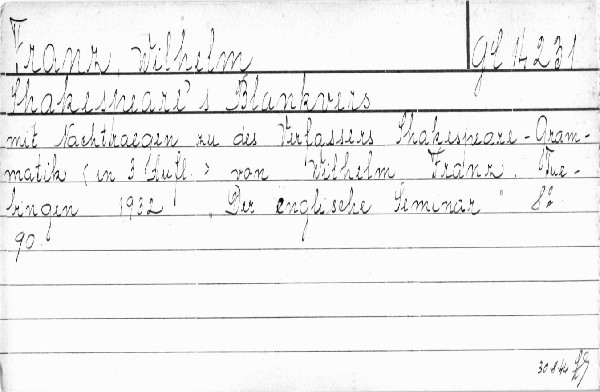 Franz, Wilhelm gC 14231
Shakespeare's Blankvers
mit Nachtraegen zu des Verfassers Shakespeare-Gram-
matik (in 3 Aufl.) von Wilhelm Franz. Tue-
bingen 1932 "Der englische Seminar" 8°
90.
30 8 44